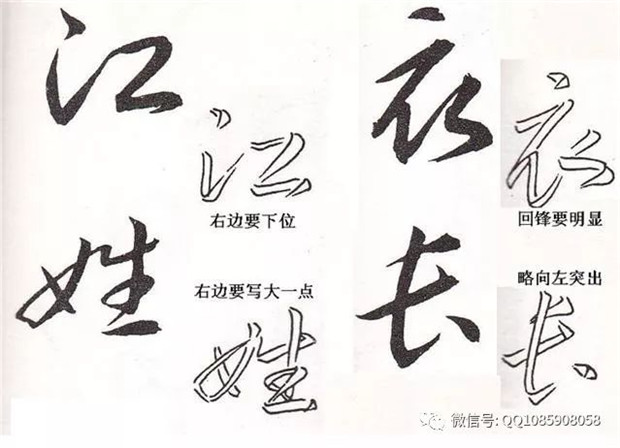 江
江
右边要下位
姓
右边要写大一点
姓
衣
衣
回锋要明显
长
略向左突出
长
微信号: QQ1085908058